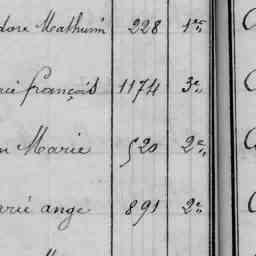 dore Mathurin 228 1er
rie françois 1174 3e
n Marie 520 2e
arie ange 891 2e